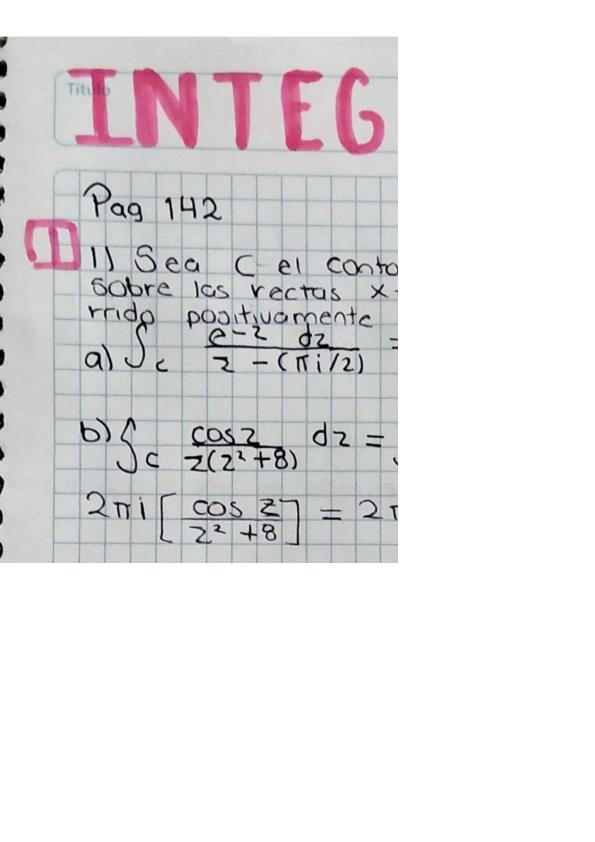 Titulo
INTEG
Pag 142
I 1) Sea C el conto
sobre las rectas x
rrido positivamente
a) ∫c e-z dz / z - (πi/2) =
b) ∫c cosz / z(z²+8) dz =
2πi [cos z / z² +8] = 2π